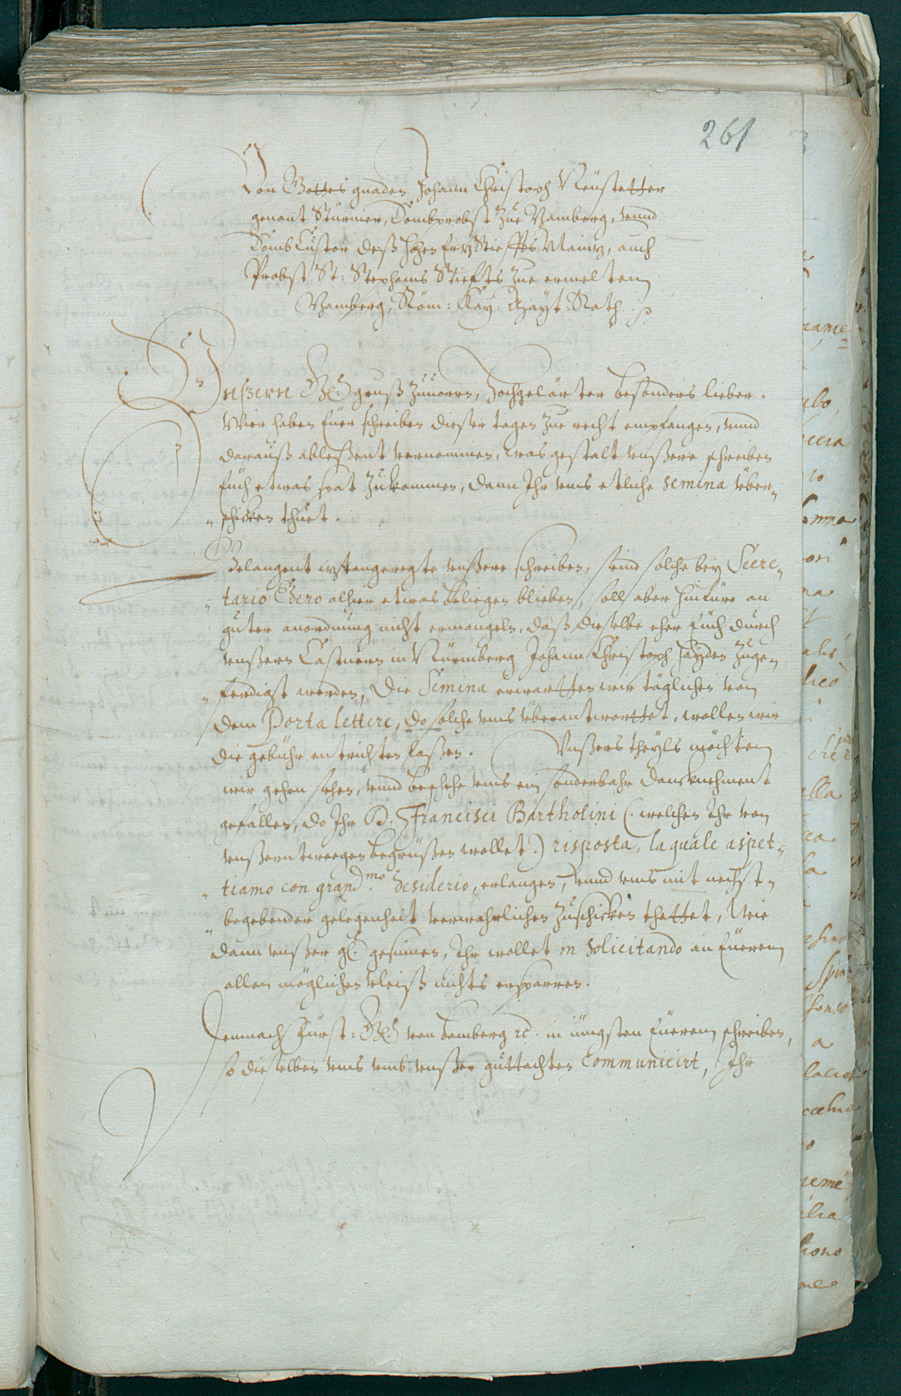 261
Von Gottes gnaden Johann Christoph Neustetter
genant Stürmer, Dombprobst Zue Bamberg, vnnd
Dombcustor deß hohen Erz Stieffts Mainz, auch
Probst St: Stephans Stieffts Zue ermeltem
Bamberg, Röm: Kay: Mayt: Rath
Vnsern gruß zuuorn, Hochgelärter besonders lieber.
Wir haben Euer schreiben dieser tagen zue recht empfangen, vnnd
darauß ableßent vernommen, was gestalt vnßere schreiben
Euch etwas spat Zukommen, dann Ihr vns etliche semina über-
schicken thuet.
Belangent iztangeregte vnßere schreiben, seind solche bey Secre-
tario alhier etwas beliegen blieben, soll aber hinfüro an
guter anordnung nicht ermangeln, daß dieselbe eher Euch durch
vnßern Castnern in Nürmberg Johann Christoph Hayden Zuge-
ferdigt werden, Die Semina erwartten wir täglichen von
dem Porta lettere, do solche vns überantworttet, wollen wir
die gebühr entrichten laßen. Vnßers theyls möchten
wir gehrn sehen, vnnd beschehe vns ein sonderbahr dancknehment
gefallen, do Ihr D. Francisci Bartholini (welchen Ihr von
vnßerntweegen begrüßen wollet.) risposta, la quale aspet-
tiamo con grand.mo desiderio, erlangen, vnnd vns mit nechst-
begebender gelegenheit verwahrlichen Zuschicken thettet, Wie
dann vnßer gl: gesinnen, Ihr wollet in solicitando an Euerem
allem möglichen vleiß nichts ersparren.
Demnach Fürst: Gl: von Bamberg ic. in jüngsten Euerem schreiben,
so dieselben vns vmb vnßer guttachten Communicirt, Ihr